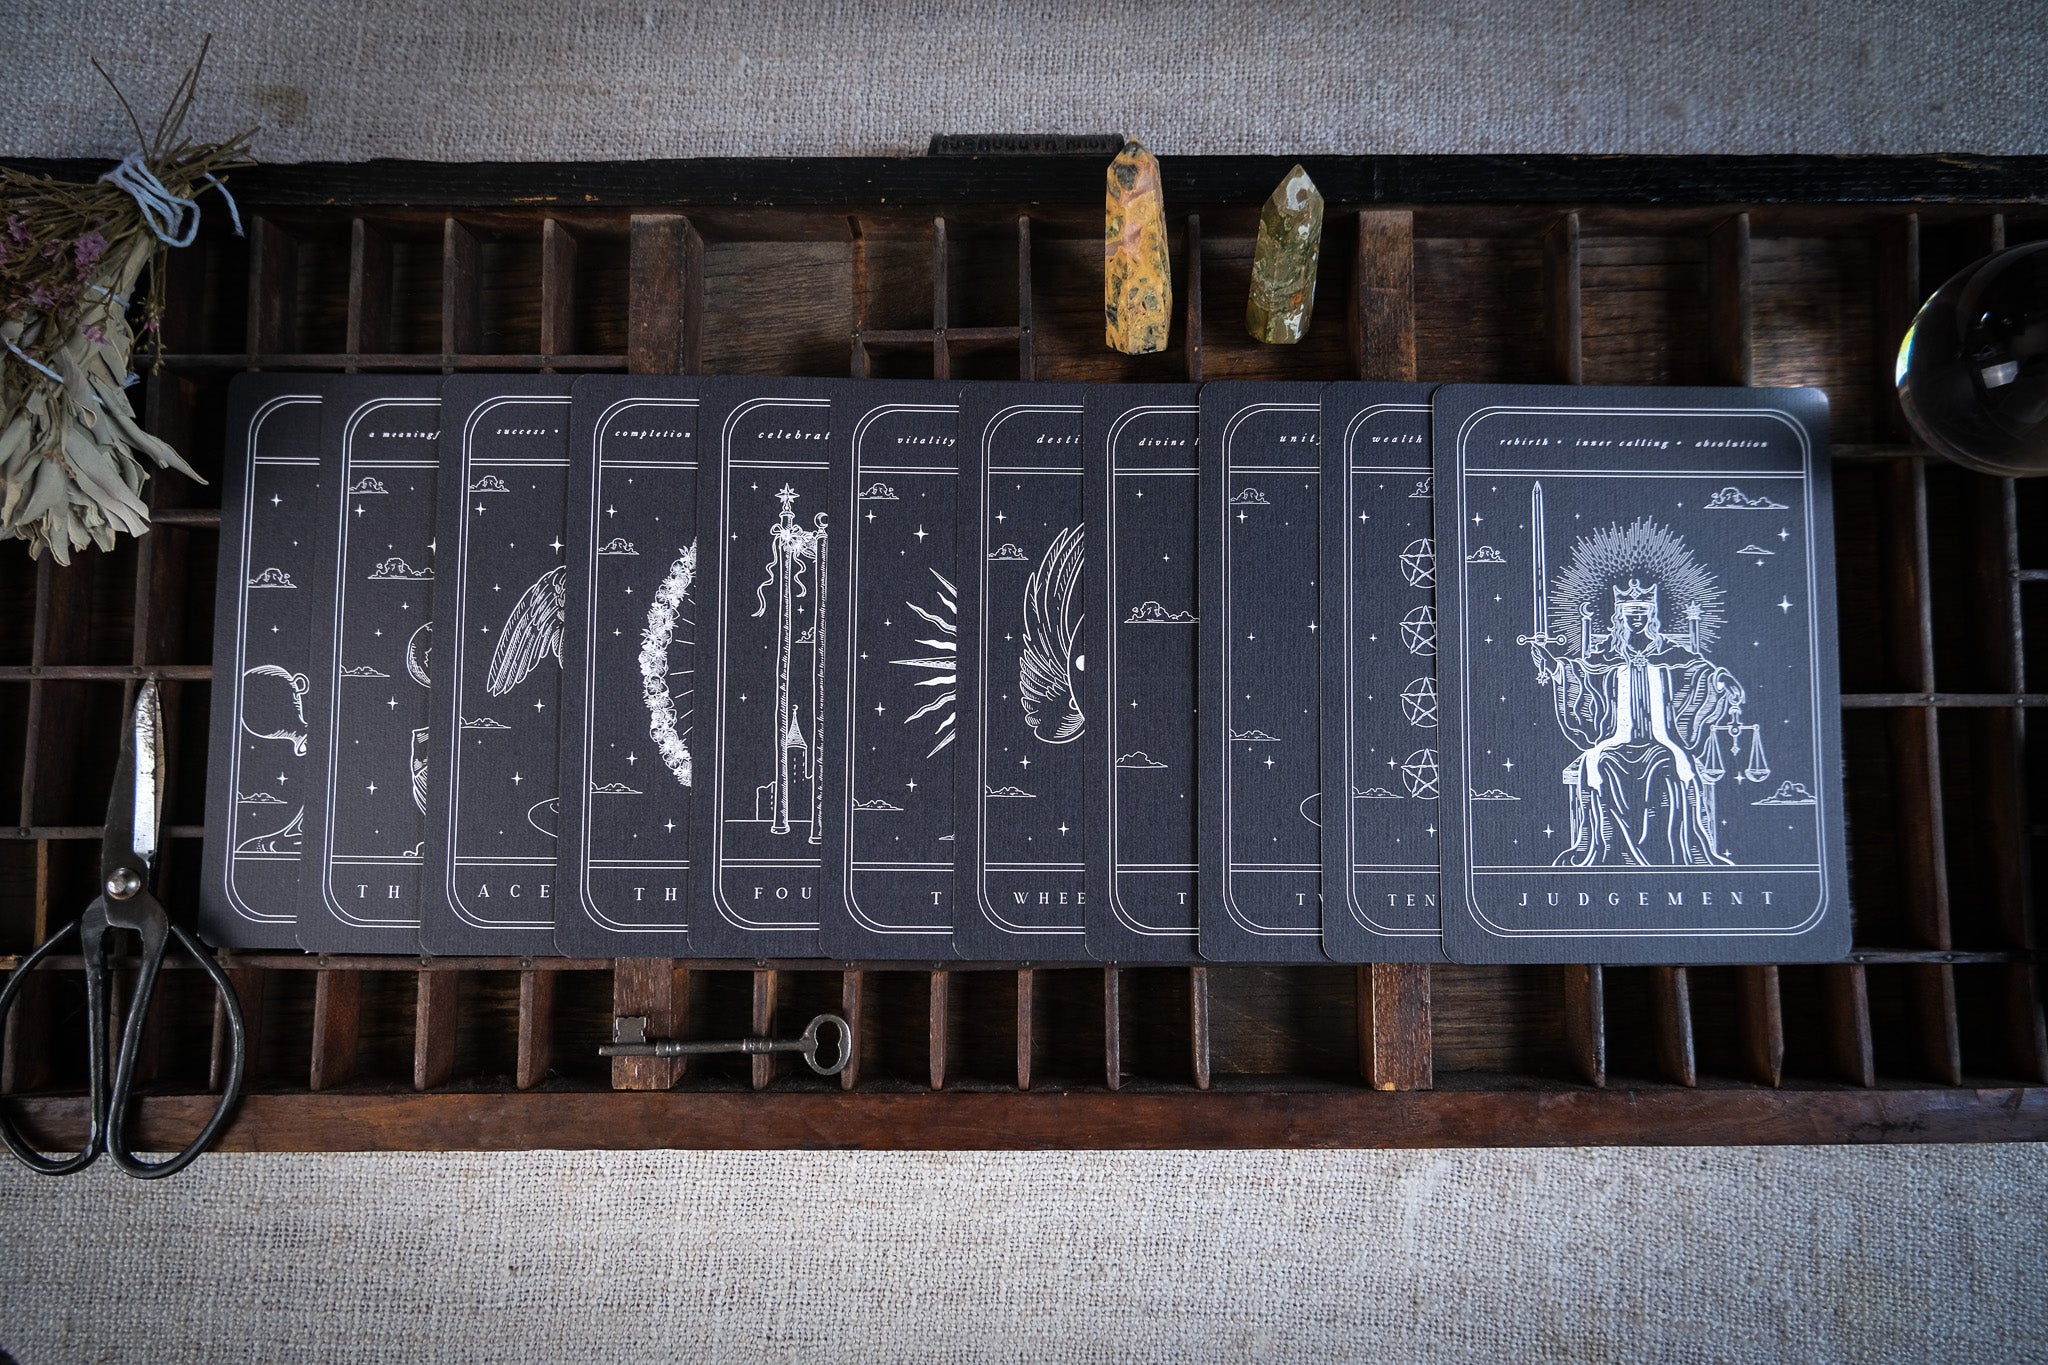 a meaningf
TH
success •
ACE
completion
TH
celebrat
FOU
vitality
T
desti
WHEE
divine l
T
unity
TW
wealth
TEN
rebirth • inner calling • absolution
JUDGEMENT